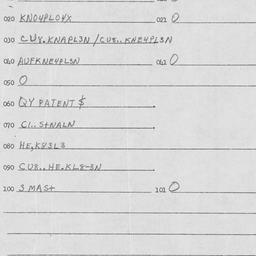 020 KNO4PLO4X 021 O
030 CU8.KNAPL3N/CU8..KNE4PL3N
040 AUFKNE4PL3N 041 O
050 O
060 QY PATENT $
070 C1..S+NALN
080 HE,K83L3
090 CU8..HE.KL8-3N
100 3 MAS+ 101 O